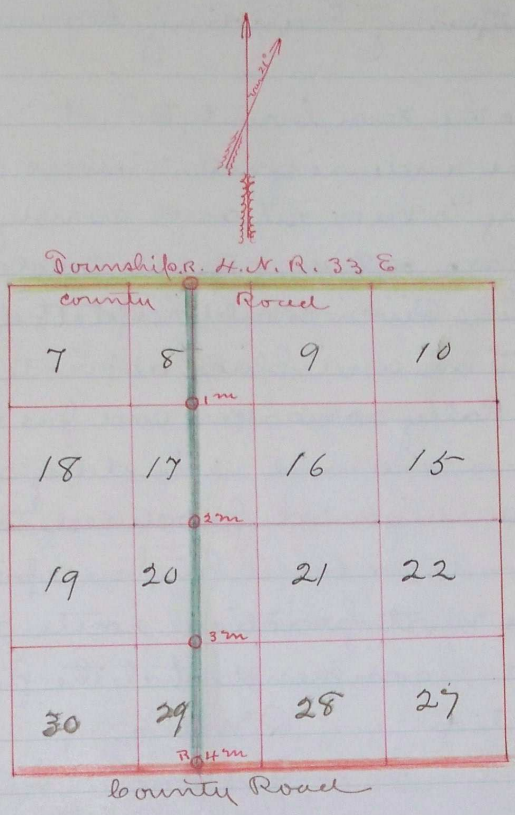 var 21°
Township. 4. N. R. 33 E
R.
County Road
7 8 9 10
1 m
18 17 16 15
2 m
19 20 21 22
3 m
30 29 28 27
R 4 m
County Road